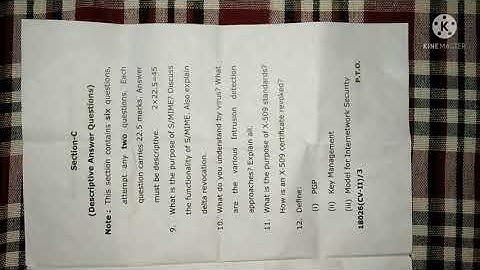 Section-C
(Descriptive Answer Questions)
Note : This section contains six questions,
attempt any two questions. Each
question carries 22.5 marks. Answer
must be descriptive. 2×22.5=45
9. What is the purpose of S/MIME? Discuss
the functionality of S/MIME. Also explain
delta revocation.
10. What do you understand by virus? What
are the various intrusion detection
approaches? Explain all.
11. What is the purpose of X-509 standards?
How is an X-509 certificate revoked?
12. Define:
(i) PGP
(ii) Key Management
(iii) Model for Internetwork Security
18026(CV-II)/3 P.T.O.
KINEMASTER